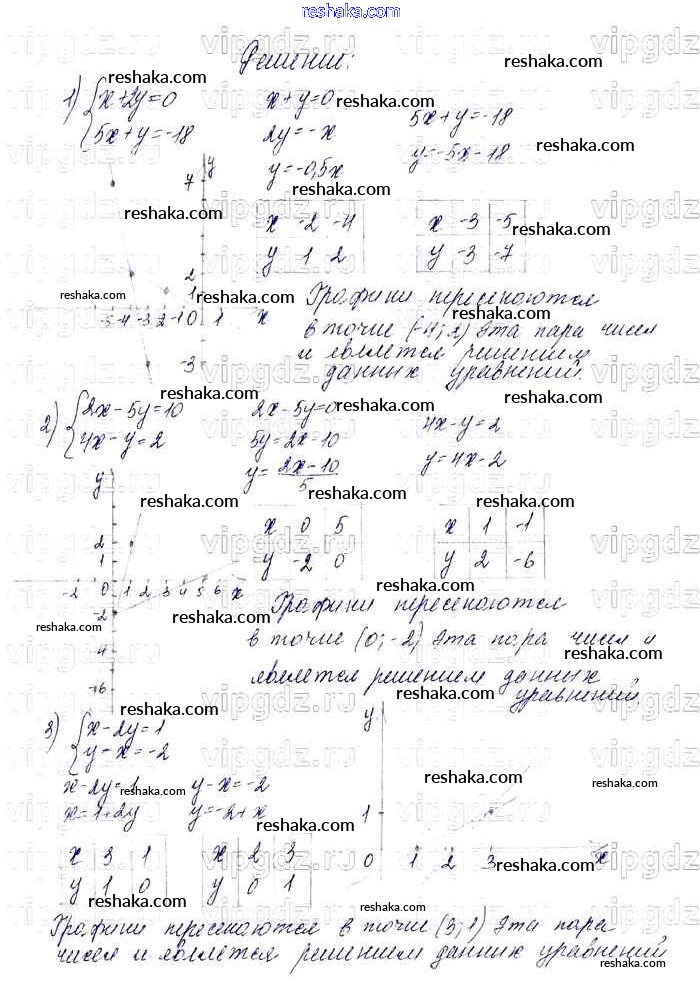 reshaka.com
Решение:
1) {x+2y=0
5x+y=-18
x+y=0
2y=-x
y=-0,5x
5x+y=-18
y=-5x-18
x -2 -4
y 1 2
x -3 -5
y -3 -7
y
7
2
1
-5 -4 -3 -2 -1 0 1 x
-3
Графики пересекаются
в точке (-4; 2) Эта пара чисел
и является решением
данных уравнений.
2) {2x-5y=10
4x-y=2
2x-5y=0
5y=2x-10
y=2x-10/5
4x-y=2
y=4x-2
x 0 5
y -2 0
x 1 -1
y 2 -6
y
2
1
-2 0 1 2 3 4 5 6 x
-2
-4
-6
Графики пересекаются
в точке (0; -2) Эта пара чисел и
является решением данных
уравнений.
3) {x-2y=1
y-x=-2
x-2y=1
x=1+2y
y-x=-2
y=-2+x
x 3 1
y 1 0
x 2 3
y 0 1
y
1
0 1 2 3 x
Графики пересекаются в точке (3; 1) Эта пара
чисел и является решением данных уравнений
vipgdz.ru
reshaka.com